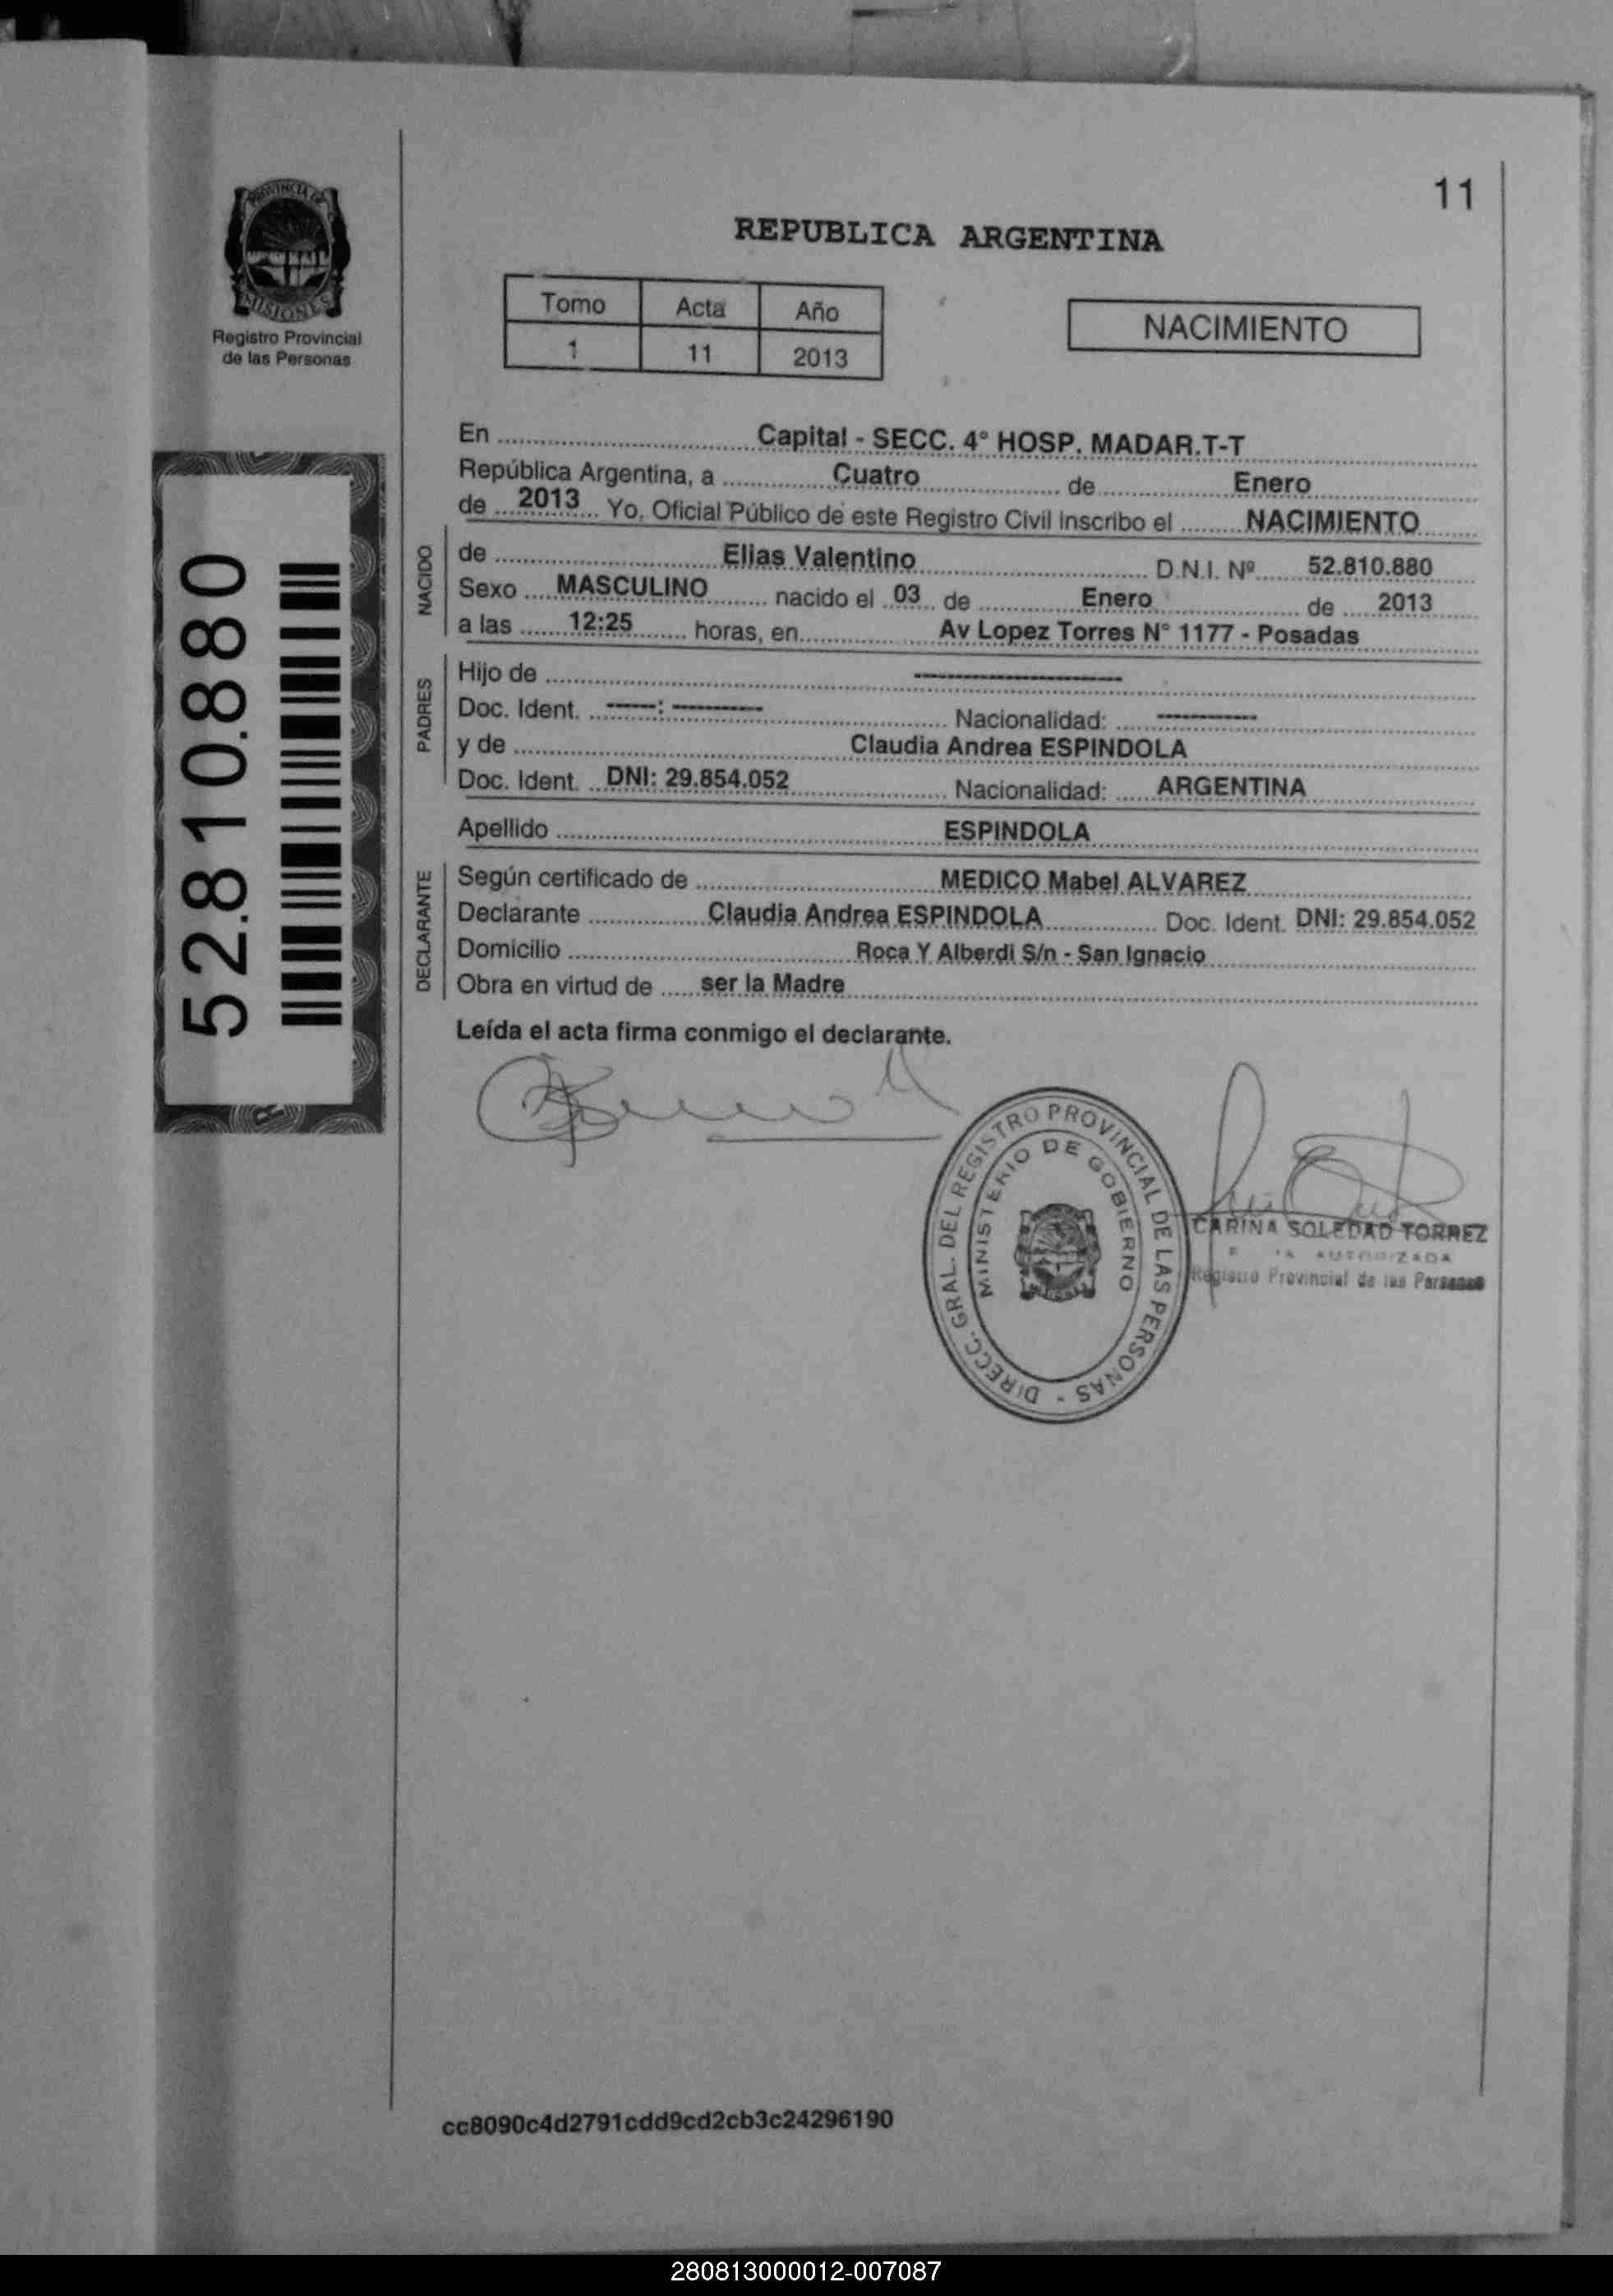 11
PROVINCIA DE
MISIONES
Registro Provincial
de las Personas
REPUBLICA ARGENTINA
Tomo Acta Año
1 11 2013
NACIMIENTO
52.810.880
En Capital - SECC. 4° HOSP. MADAR.T-T
República Argentina, a Cuatro de Enero
de 2013 Yo, Oficial Público de este Registro Civil inscribo el NACIMIENTO
NACIDO
de Elias Valentino D.N.I. Nº 52.810.880
Sexo MASCULINO nacido el 03 de Enero de 2013
a las 12:25 horas, en Av Lopez Torres N° 1177 - Posadas
PADRES
Hijo de --------------------
Doc. Ident. -----: --------- Nacionalidad: ----------
y de Claudia Andrea ESPINDOLA
Doc. Ident. DNI: 29.854.052 Nacionalidad: ARGENTINA
Apellido ESPINDOLA
DECLARANTE
Según certificado de MEDICO Mabel ALVAREZ
Declarante Claudia Andrea ESPINDOLA Doc. Ident. DNI: 29.854.052
Domicilio Roca Y Alberdi S/n - San Ignacio
Obra en virtud de ser la Madre
Leída el acta firma conmigo el declarante.
DIRECC. GRAL. DEL REGISTRO PROVINCIAL DE LAS PERSONAS -
MINISTERIO DE GOBIERNO
CARINA SOLEDAD TORREZ
AUTORIZADA
Registro Provincial de las Personas
cc8090c4d2791cdd9cd2cb3c24296190
280813000012-007087